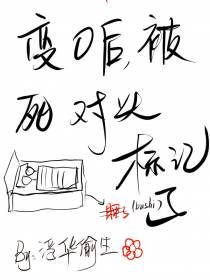 变O后,被
死对头
标记
了
睡 (bushi)
By:浮华偷生